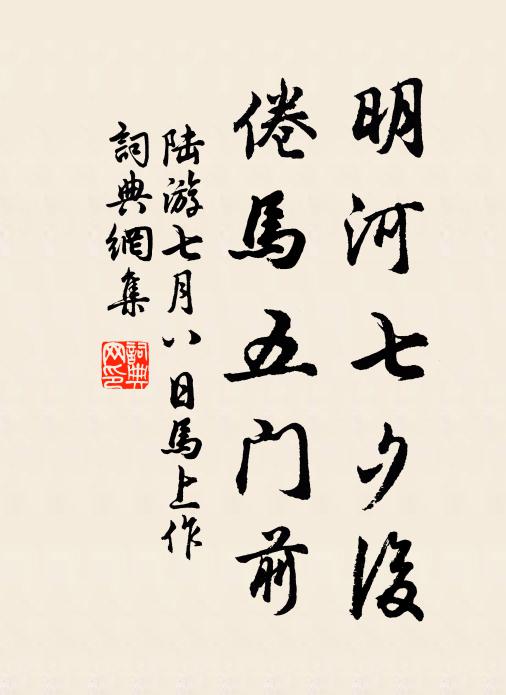 明河七夕後
倦馬五门前
陆游七月八日馬上作
詞典網集
詞典網印